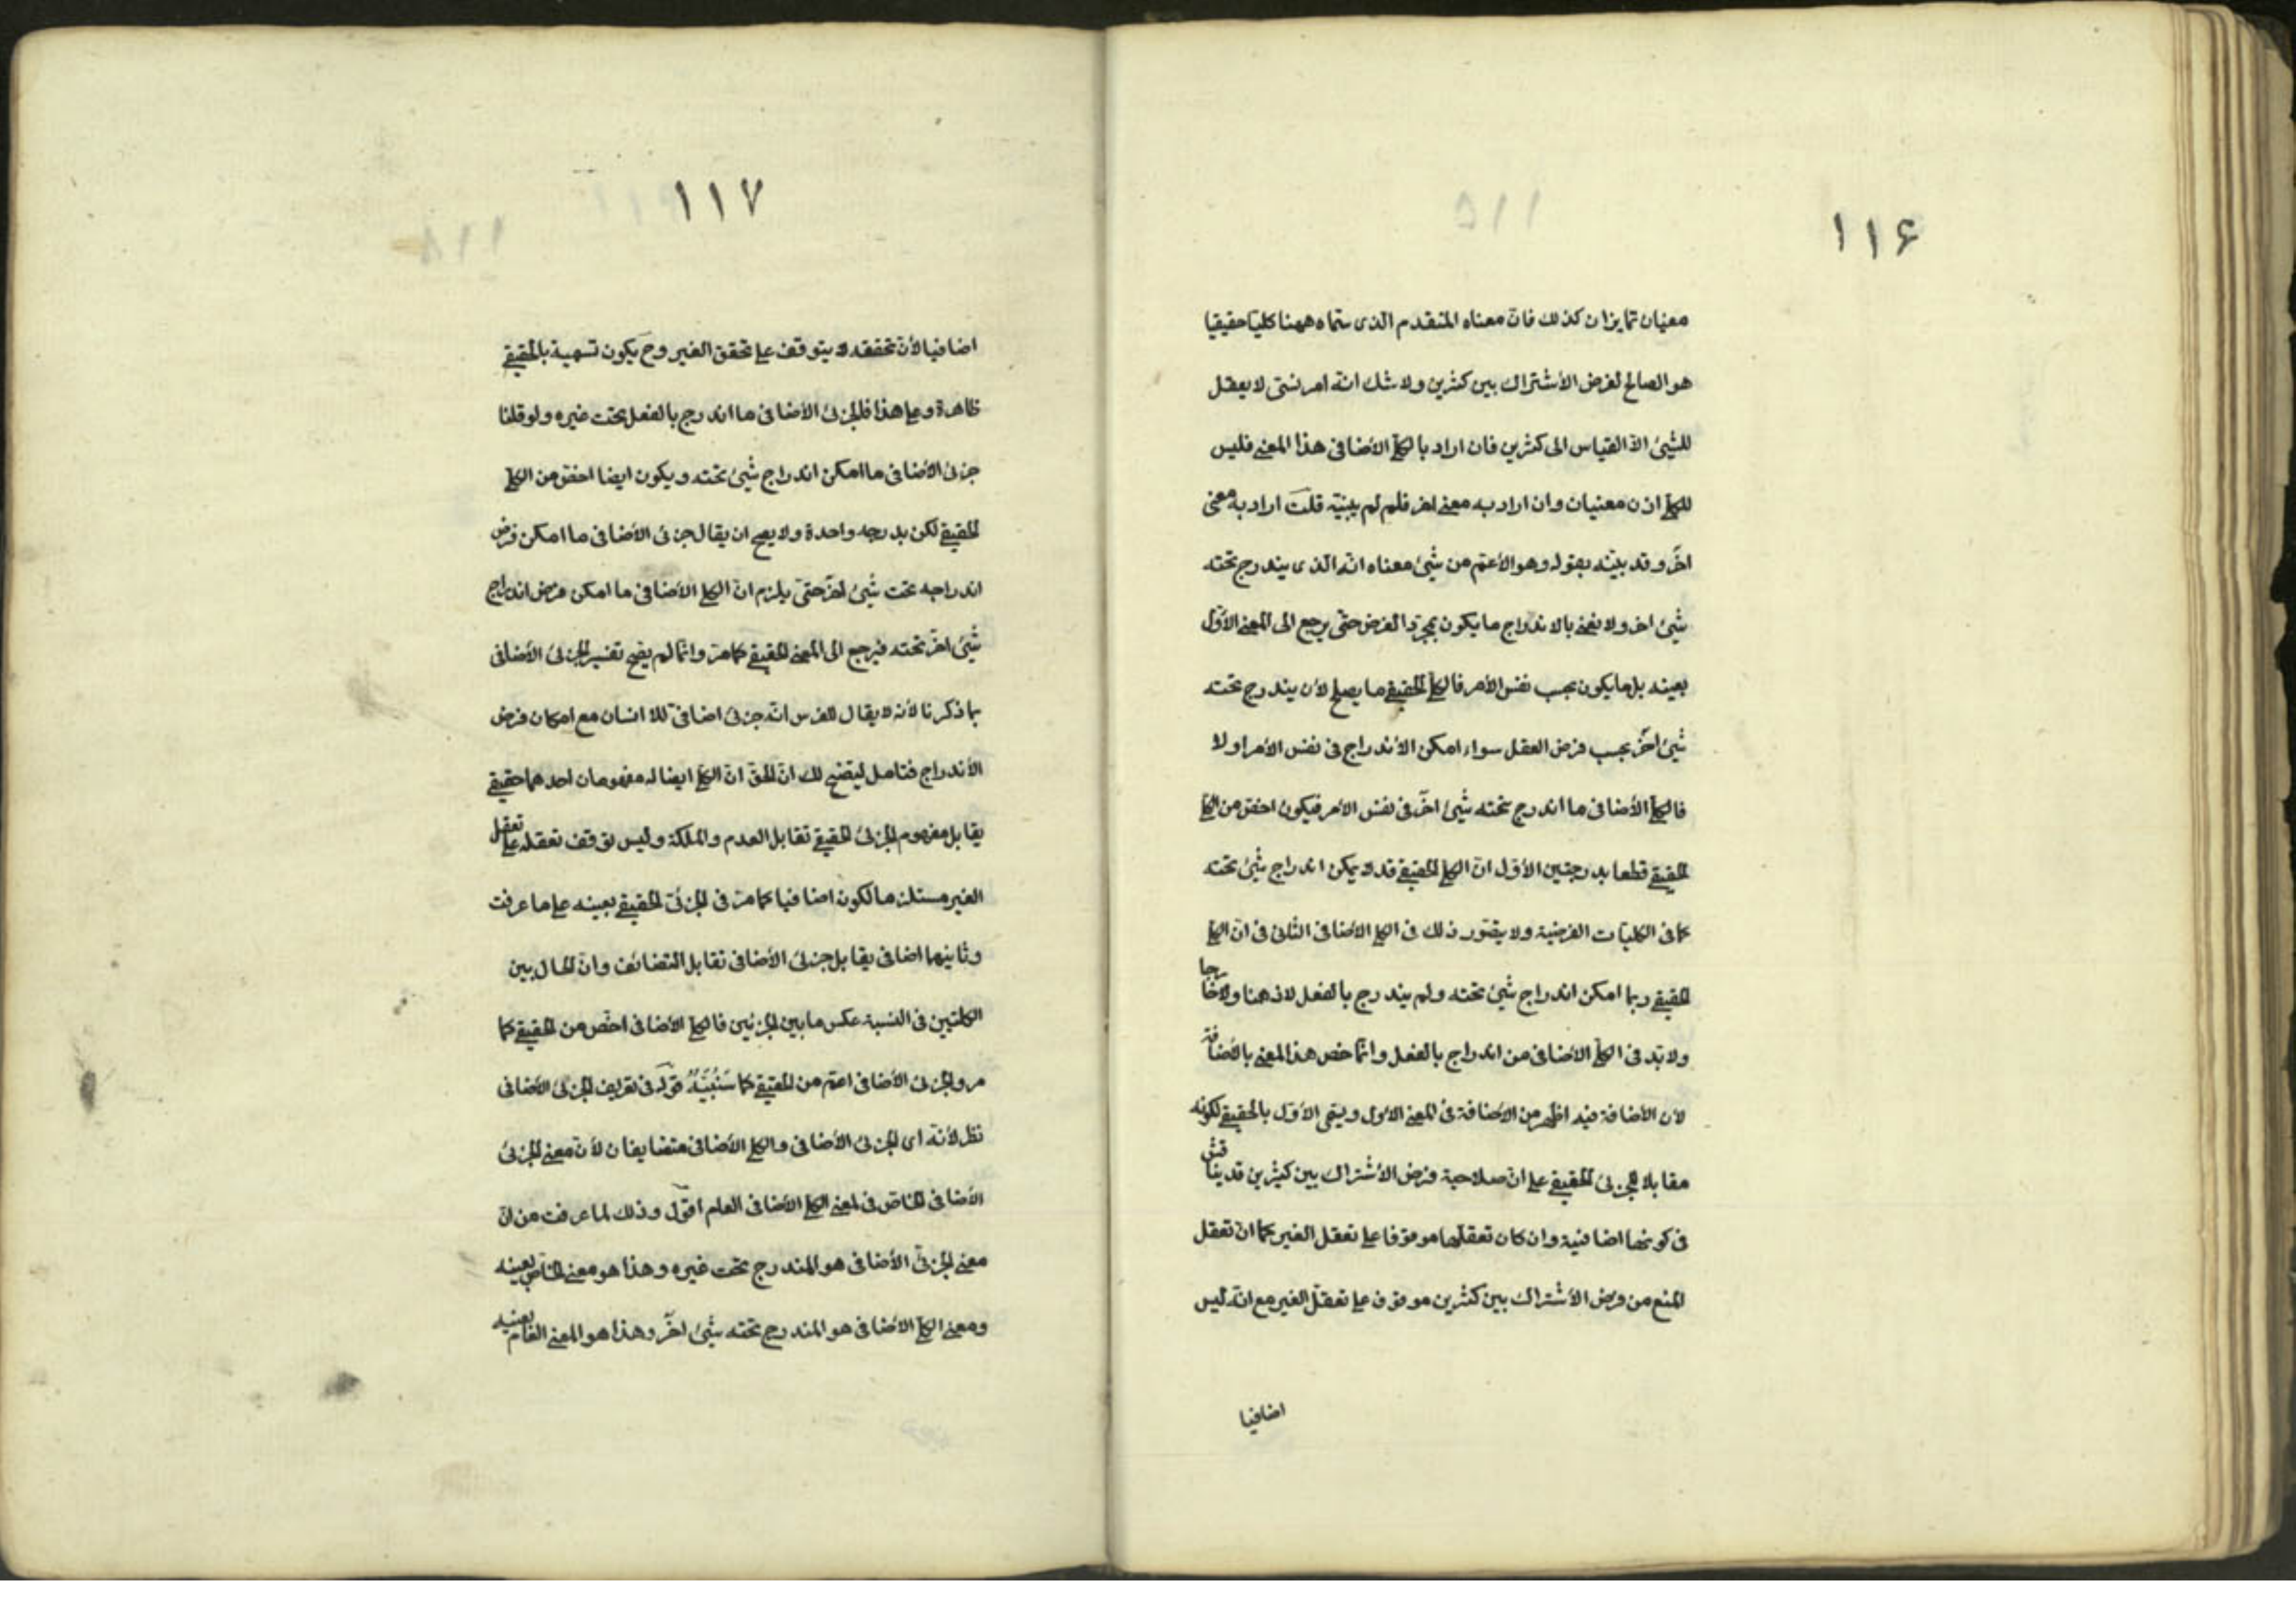 ١١۶
معنيان تمايزان كذلك فان معناه المتقدم الذى سماه ههنا كليا حقيقيا
هو الصالح لفرض الأشتراك بين كثرين ولا شك انه امر نسبى لا يعقل
للشيئ الا القياس الى كثرين فان اراد بالكلى الأضافى هذا المعنى فليس
للكلى اذن معنيان وان اراد به معنى اخر فلم لم يبنيه قلت اراد به معنى
اخر وقد بيّنه بقوله وهو الأعم من شيئ معناه انه الذى يندرج تحته
شيئ اخر ولا نعنى بالاندراج ما يكون بمجرد الفرض حتى يرجع الى المعنى الأول
بعينه بل ما يكون بحسب نفس الأمر فالكلى الحقيقى ما يصلح لأن يندرج تحته
شيئ اخر بحسب فرض العقل سواء امكن الأندراج فى نفس الأمر اولا
فالكلى الأضافى ما اندرج تحته شيئ اخر فى نفس الأمر فيكون اخص من الكلى
الحقيقى قطعا بدرجتين الأول ان الكلى الحقيقى قد لا يمكن اندراج شيئ تحته
كما فى الكليات الفرضية ولا يتصور ذلك فى الكلى الأضافى الثانى فى ان الكلى
الحقيقى ربما امكن اندراج شيئ تحته ولم يندرج بالفعل لا ذهنا ولا خارجا
ولا بد فى الكلى الأضافى من اندراج بالفعل وانما خص هذا المعنى بالأضافة
لأن الأضافة فيه اظهر من الأضافة فى المعنى الأول ويسمى الأول بالحقيقى لكونه
مقابلا للجزئى الحقيقى على ان صلاحية فرض الأشتراك بين كثيرين قد يناقش
فى كونها اضافية وان كان تعقلها موقوفا على تعقل الغير كما ان تعقل
المنع من فرض الأشتراك بين كثرين موقوف على تعقل الغير مع انه ليس
اضافيا
١١٧
اضافيا لأن تحققه لا يتوقف على تحقق الغير وح يكون تسمية بالحقيقى
ظاهرة وعلى هذا فالجزئى الأضافى ما اندرج بالفعل تحت غيره ولو قلنا
جزئى الأضافى ما امكن اندراج شيئ تحته ويكون ايضا اخص من الكلى
الحقيقى لكن بدرجه واحدة ولا يصح ان يقال جزئى الأضافى ما امكن فرض
اندراجه تحت شيئ اخر حتى يلزم ان الكلى الأضافى ما امكن فرض اندراج
شيئ اخر تحته فيرجع الى المعنى الحقيقى كما مر وانما لم يصح تفسير الجزئى الأضافى
بما ذكرنا لأنه لا يقال للفرس انه جزئى اضافى للانسان مع امكان فرض
الأندراج فتامل ليتضح لك ان الحق ان الكلى ايضا له مفهومان احدهما حقيقى
يقابل مفهوم الجزئى الحقيقى تقابل العدم والملكة وليس توقف تعقله على تعقل
الغير مستلزما لكون اضافيا كما مر فى الجزئى الحقيقى بعينه على ما عرفت
وثانيهما اضافى يقابل جزئى الأضافى تقابل التضائف وان الحال بين
الكليين فى النسبة عكس ما بين الجزئين فالكلى الأضافى اخص من الحقيقى كما
مر والجزئى الأضافى اعم من الحقيقى كما سنبيّنه قوله فى تعريف الجزئى الأضافى
نظر لأنه اى الجزئى الأضافى والكلى الأضافى متضايفان لأن معنى الجزئى
الأضافى الخاص فى لمعنى الكلى الأضافى العام اقول وذلك لما عرفت من ان
معنى الجزئى الأضافى هو المندرج تحت غيره وهذا هو معنى الخاص بعينه
ومعنى الكلى الأضافى هو المندرج تحته شيئ اخر وهذا هو المعنى العام بعينه